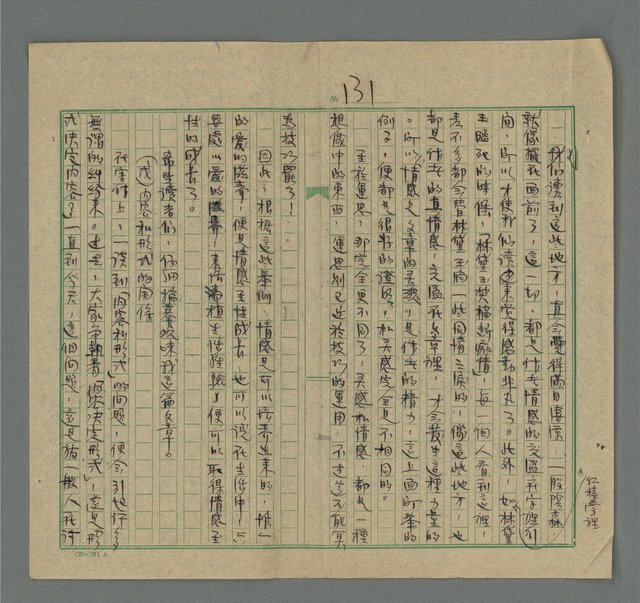 No 131
我們讀到這些地方,真會覺得滿目淒慘,一股陰森
就像擺在面前了,這一切,都是作者情感的交流在字裡行
間,所以才使我們讀起來覺得感動非凡了。此外,如「林黛
紅樓夢裡
玉臨死的時候,「林黛玉焚稿斷痴情」,每一個人看到這裡,
差不多都會替林黛玉滴一些同情之淚的,像這些地方,也
都是作者的真情感,交流在文章裡,才會發生這種力量的
。所以情感是文章的靈魂,是作者的精力,這上面所舉的
例子,便都是很好的證明,和靈感完全是不相同的。
至於運思,那完全更不同了,靈感和情感,都是一種
想像中的東西,運思則已近於技巧的運用,不過並不能算
為技巧罷了!
因此,根據這些舉例,情感是可以培養出來的,「
的愛的滋養,便是情感至性成長,也可以說在生活中,
要處以愛的滋養,來培植生活經驗,便可以取得情感至
性的成長了。
希望讀者們,仔細揣摹玩味我這篇文章。
(戊)內容和形式的關係
在寫作上,一談到「內容和形式」的問題,便會引起許多
無謂的糾紛來。過去,大家爭執着「內容決定形式」,並是「形
式決定內容」?一直到今天,這個問題,並是被一般人在討
(20×25) A